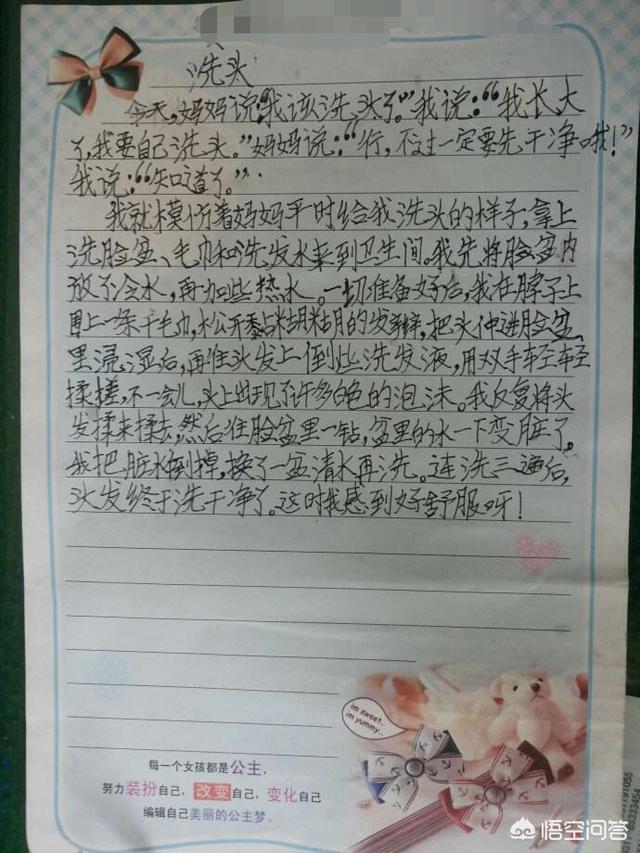 洗头
今天,妈妈说:"我该洗头了。"我说:"我长大
了,我要自己洗头。"妈妈说:"行,不过一定要洗干净哦!"
我说:"知道了。"
我就模仿着妈妈平时给我洗头的样子,拿上
洗脸盆、毛巾和洗发水来到卫生间。我先将脸盆内
放了冷水,再加些热水。一切准备好后,我在脖子上
围上一条干毛巾,松开黏糊糊的发辫,把头伸进脸盆
里浸湿后,再往头发上倒些洗发液,用双手轻轻
揉搓,不一会儿,头上出现了许多白色的泡沫。我反复将头
发揉来揉去,然后往脸盆里一钻,盆里的水一下变脏了。
我把脏水倒掉,换了一盆清水再洗。连洗三遍后,
头发终于洗干净了。这时我感到好舒服呀!
im sweet..
im yummy..
每一个女孩都是公主,
努力装扮自己,改变自己,变化自己
编辑自己美丽的公主梦。
悟空问答